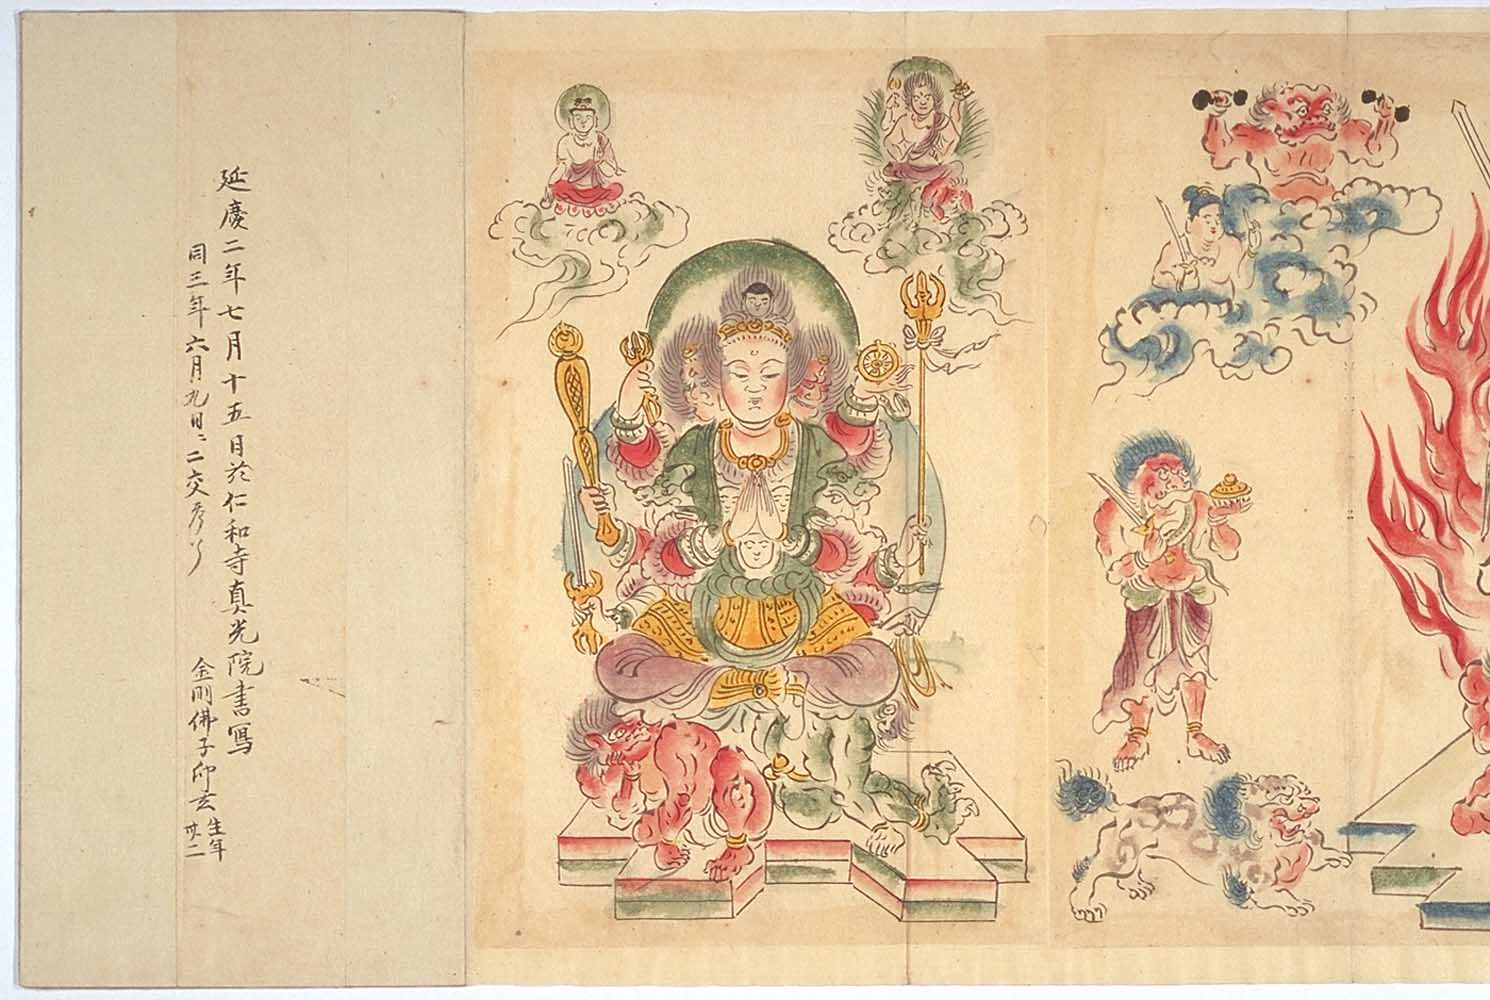 延慶二年七月十五日於仁和寺真光院書寫
金剛佛子印玄生年廿二
同三年六月九日二交了